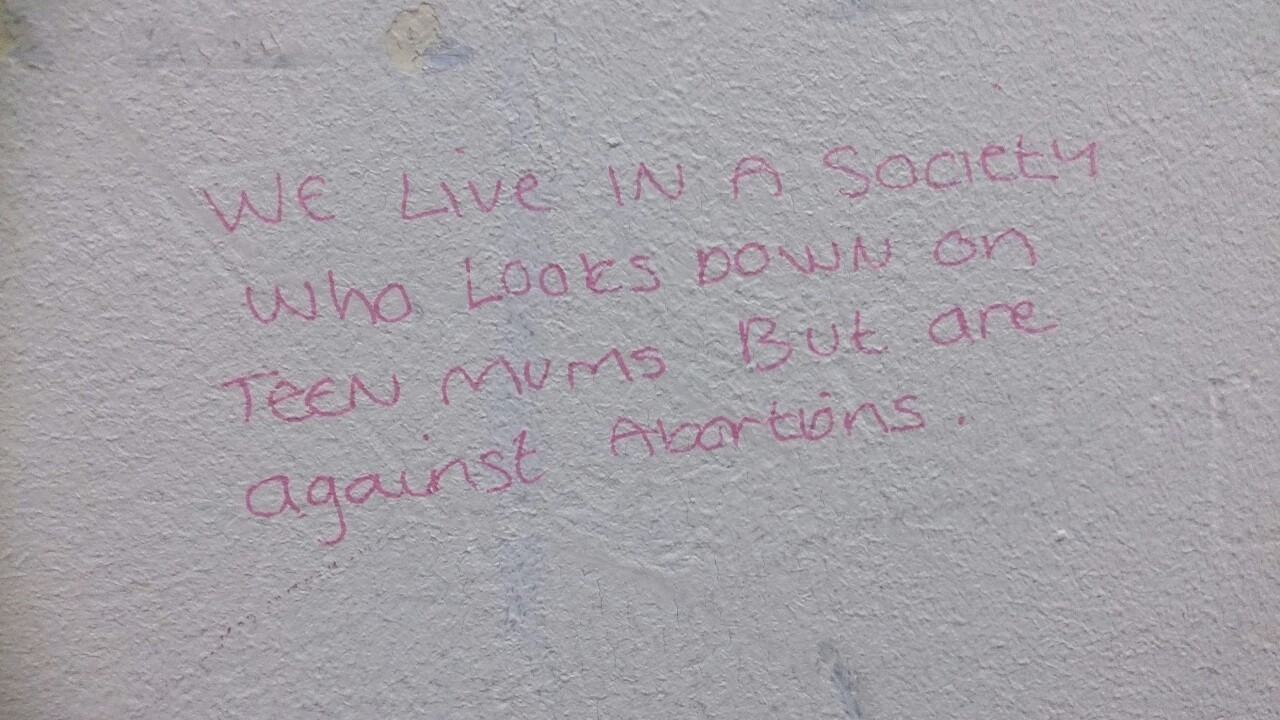 WE Live IN A Society
who Looks DOWN on
TEEN Mums But are
against Abortions.